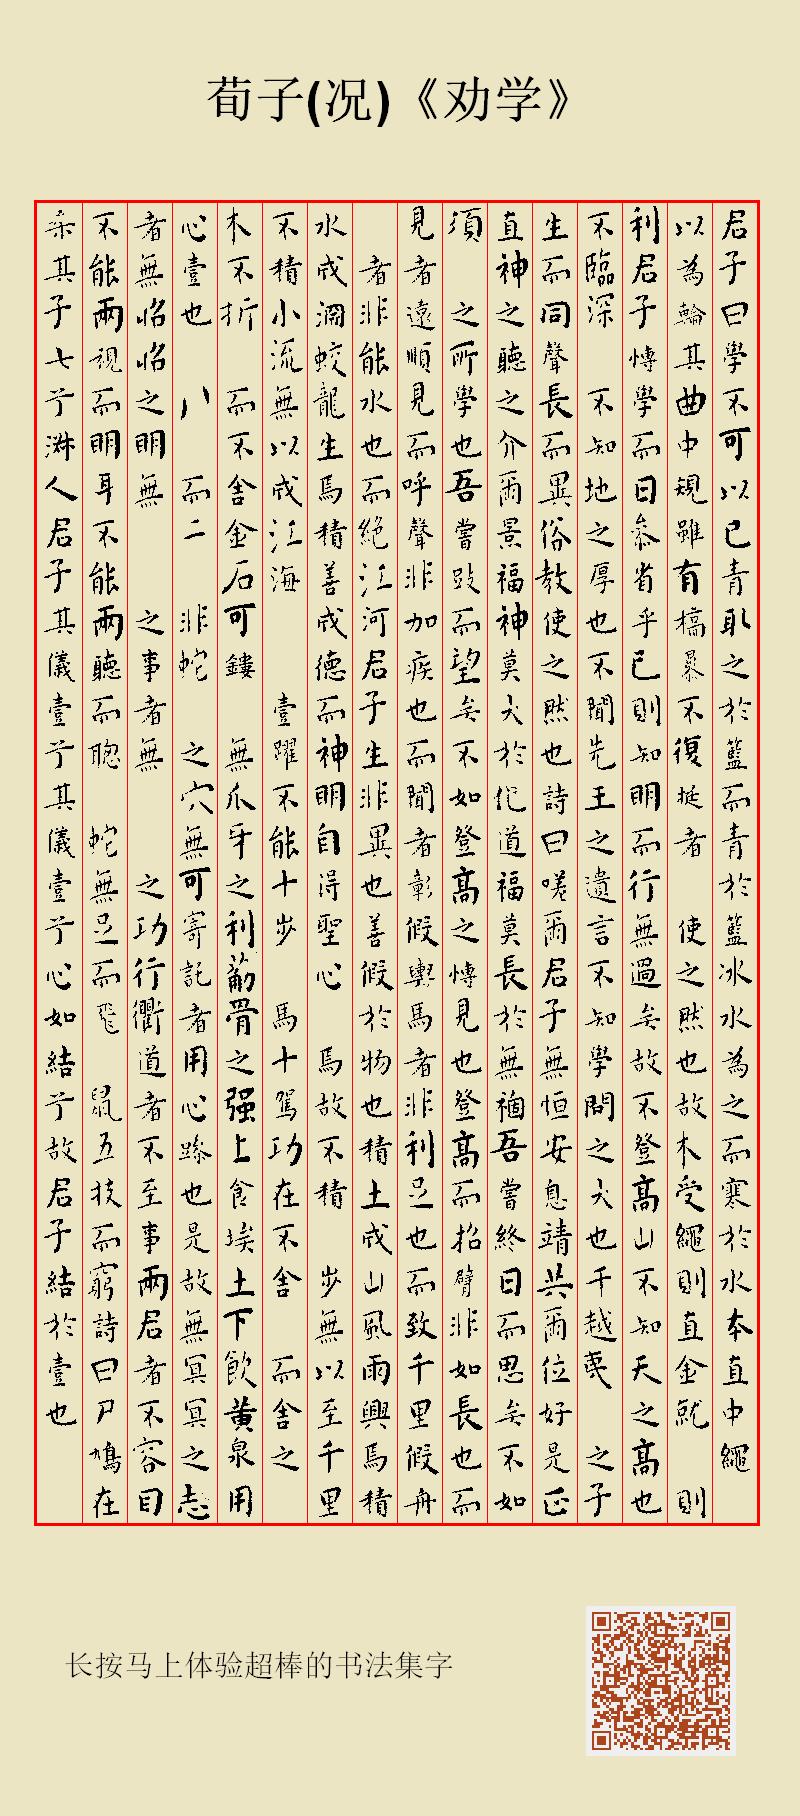 荀子(况)《劝学》
君子曰學不可以已青取之於籃而青於籃冰水為之而寒於水本直中繩
以為輪其曲中規雖有槁暴不復挺者 使之然也故木受繩則直金就 則
利君子慱學而日參省乎已則知明而行無過矣故不登高山不知天之高也
不臨深 不知地之厚也不聞先王之遺言不知學問之大也干越夷 之子
生而同聲長而異俗教使之然也詩曰嗟爾君子無恒安息靖共爾位好是正
直神之聽之介爾景福神莫大於化道福莫長於無禍吾嘗終日而思矣不如
須 之所學也吾嘗跂而望矣不如登高之慱見也登高而招臂非如長也而
見者遠順見而呼聲非加疾也而聞者彰假輿馬者非利足也而致千里假舟
者非能水也而絕江河君子生非異也善假於物也積土成山風雨興焉積
水成淵蛟龍生焉積善成德而神明自得聖心 焉故不積 步無以至千里
不積小流無以成江海 壹躍不能十步 馬十駕功在不舍 而舍之
木不折 而不舍金石可鏤 無爪牙之利筋骨之强上食埃土下飲黄泉用
心壹也 八 而二 非蛇 之穴無可寄託者用心躁也是故無冥冥之志
者無昭昭之明無 之事者無 之功行衢道者不至事兩君者不容目
不能兩視而明耳不能兩聽而聰 蛇無足而飛 鼠五技而窮詩曰尸鳩在
桑其子七兮淑人君子其儀壹兮其儀壹兮心如結兮故君子結於壹也
长按马上体验超棒的书法集字